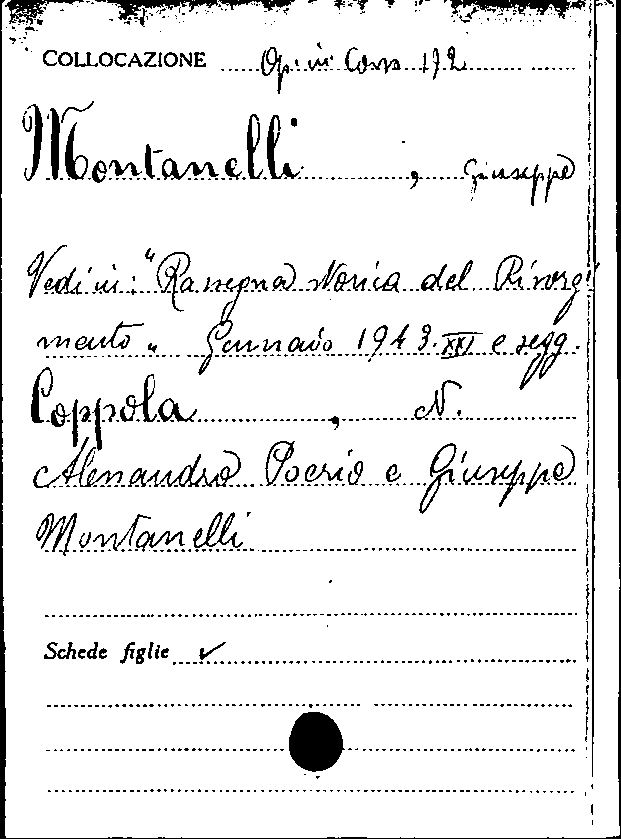 COLLOCAZIONE Op. in Cons 192
Montanelli , Giuseppe
Vedi in: "Rassegna Storica del Risorgi
mento" Gennaio 1943. XXI e segg.
Coppola , N.
Alessandro Poerio e Giuseppe
Montanelli
Schede figlie ✓